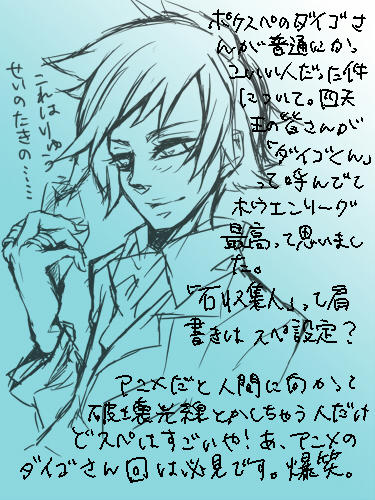 ポケスペのダイゴさ
んが普通にかっ
こいい人だった件
について。四天
王の皆さんが
「ダイゴくん」
って呼んでて
ホウエンリーグ
最高って思いまし
た。
「石収集人」って肩
書きは スペ設定？
アニメだと人間に向かって
破壊光線とかしちゃう人だけ
どスペはすごいや！あ、アニメの
ダイゴさん回は必見です。爆笑。
これはりゅう
せいのたきの……